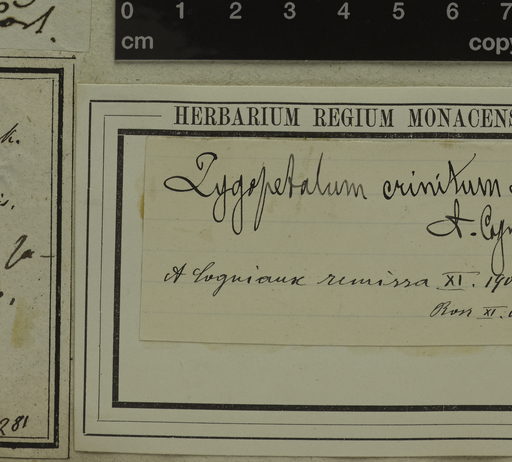 0 1 2 3 4 5 6 7
cm copy
HERBARIUM REGIUM MONACENS
Zygopetalum crinitum
A. Cogn
A Cogniaux remissa XI. 190
XI.
281